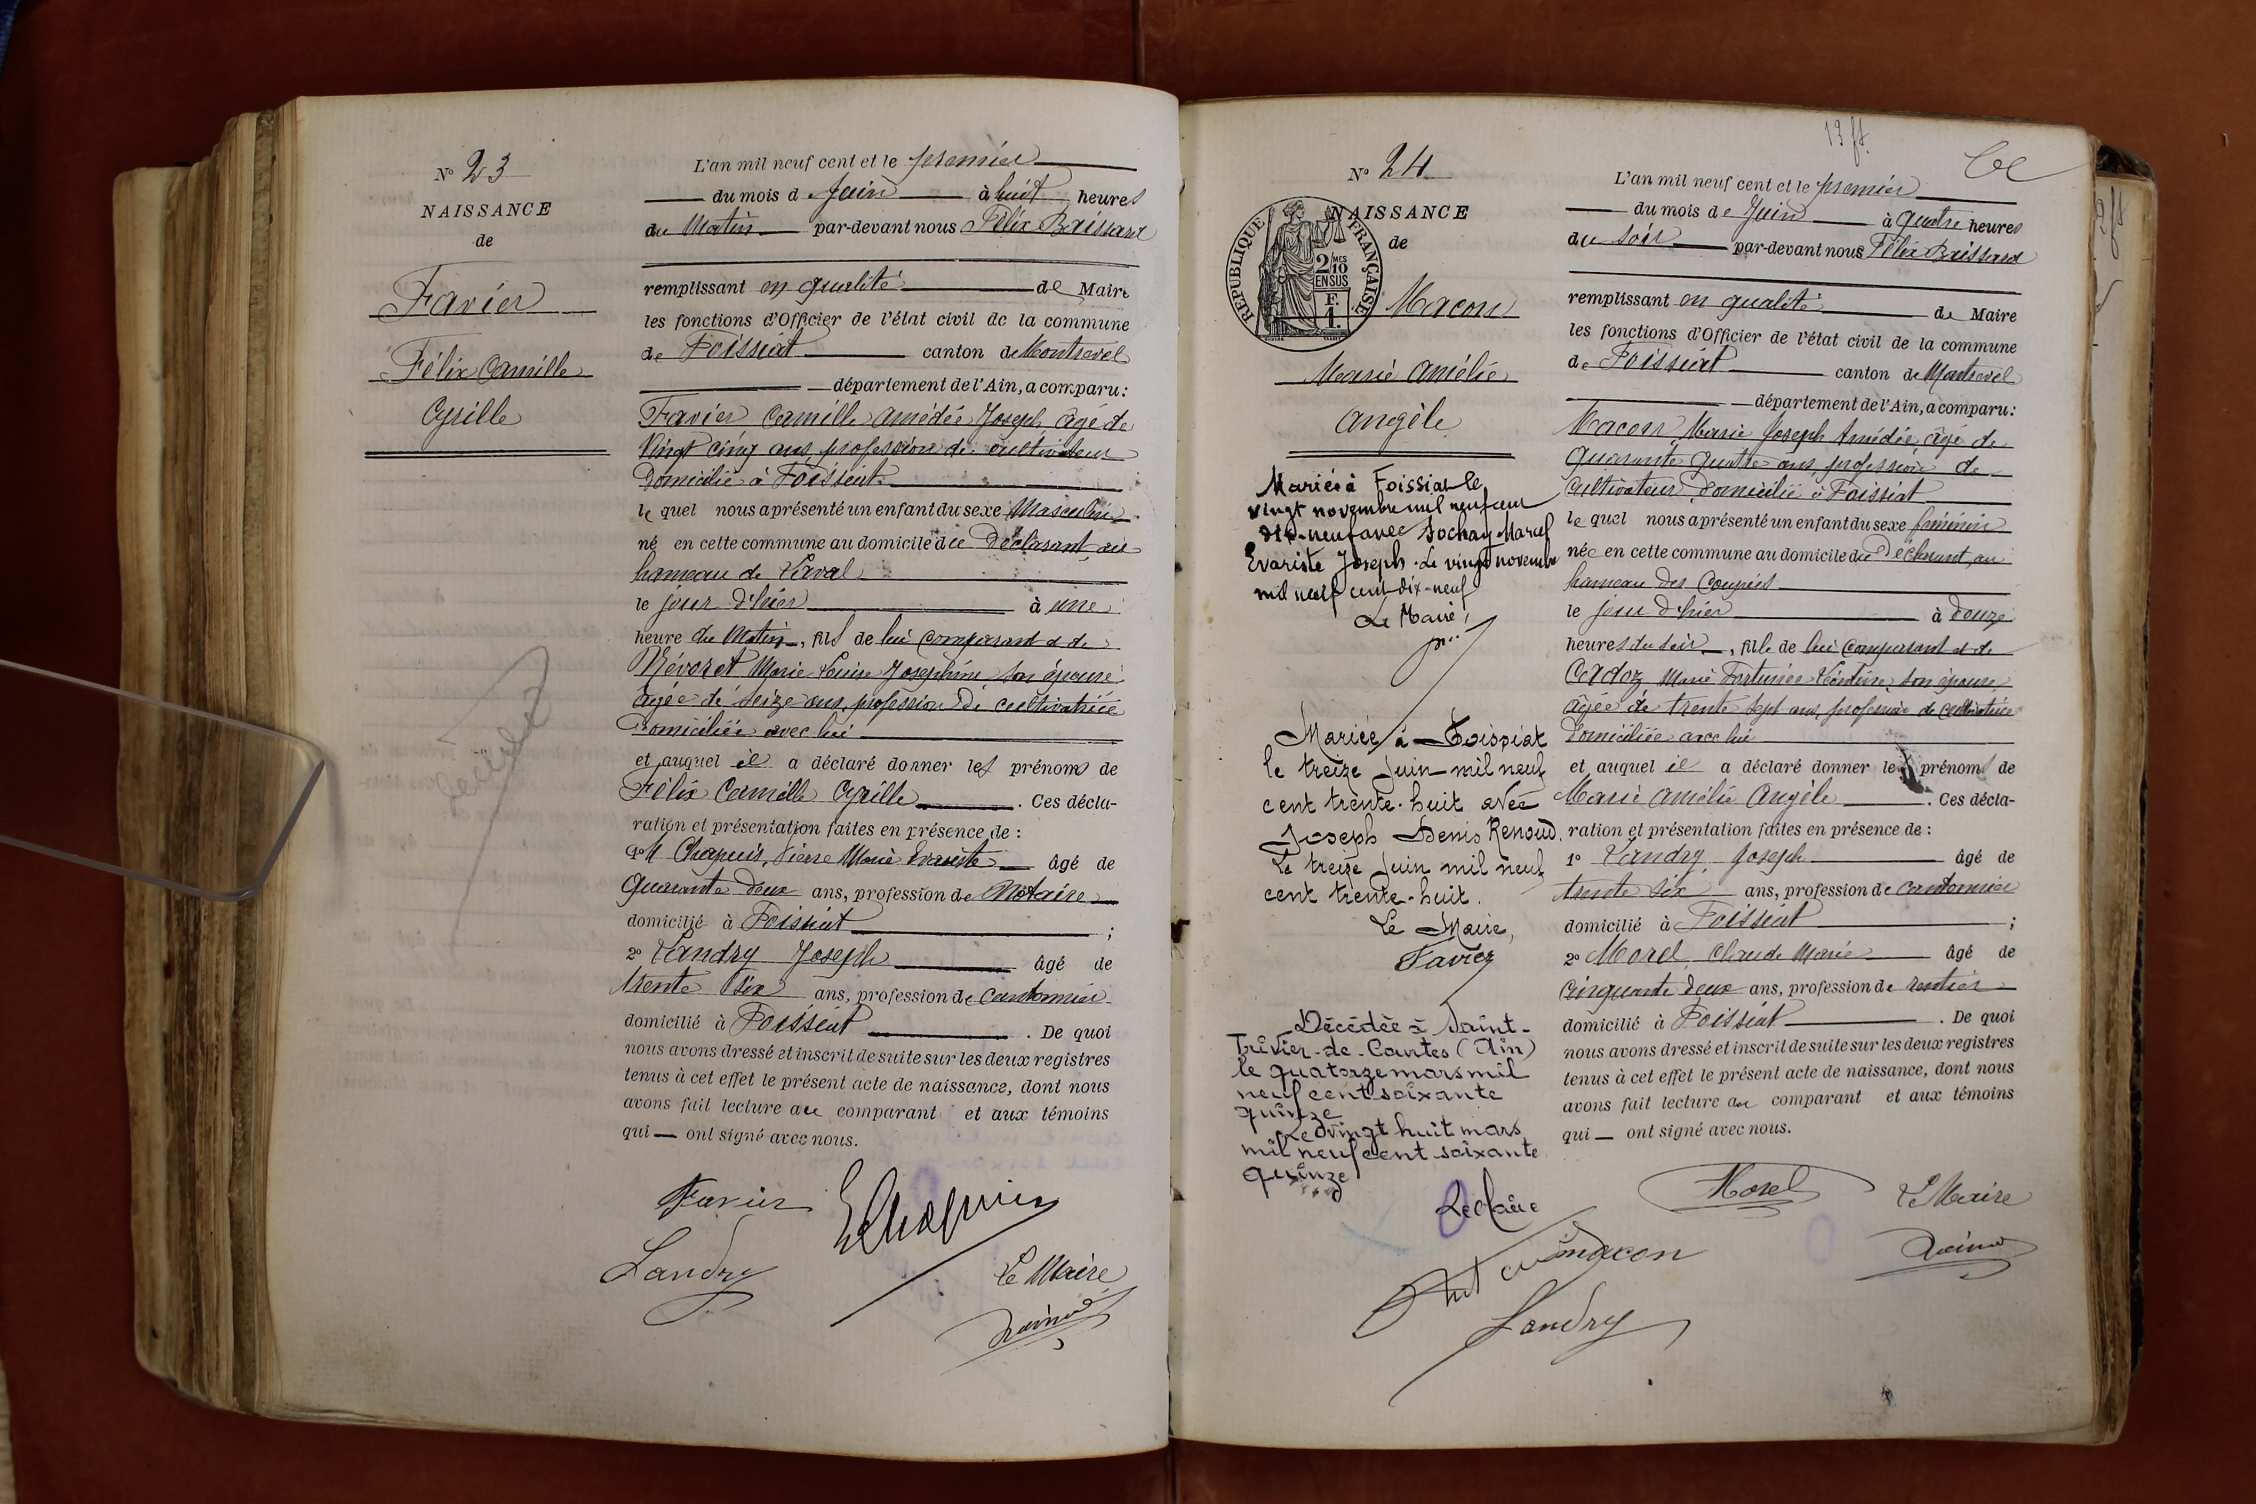 No 23
NAISSANCE
de
Favier
Félix Camille
Cyrille
L'an mil neuf cent et le premier
du mois de Juin à huit heures
du Matin par-devant nous Félix Brissard
remplissant en qualité de Maire
les fonctions d'Officier de l'état civil de la commune
de Foissiat canton de Montrevel
département de l'Ain, a comparu:
Favier Camille Amédée Joseph âgé de
Vingt cinq ans, profession de cultivateur
Domicilié à Foissiat
le quel nous a présenté un enfant du sexe Masculin
né en cette commune au domicile du Déclarant, au
hameau de Laval
le jour d'hier à une
heure du Matin, fils de lui comparant et de
Révoret Marie Louise Josephine son épouse
âgée de seize ans, profession de cultivatrice
Domiciliée avec lui
et auquel il a déclaré donner les prénoms de
Félix Camille Cyrille. Ces décla-
ration et présentation faites en présence de :
1o M Chapuis, Pierre Marie Evariste âgé de
Quarante deux ans, profession de Notaire
domicilié à Foissiat ;
2o Landry Joseph âgé de
trente six ans, profession de Cantonnier
domicilié à Foissiat. De quoi
nous avons dressé et inscrit de suite sur les deux registres
tenus à cet effet le présent acte de naissance, dont nous
avons fait lecture au comparant et aux témoins
qui ont signé avec nous.
Favier
Landry
Le Maire
13 ft
No 24
NAISSANCE
de
REPUBLIQUE FRANÇAISE
2/10 MES
EN SUS
F.
1.
Macon
Marie Amélie
Angèle
Mariée à Foissiat le
vingt novembre mil neuf cent
dix-neuf avec Sochay Marcel
Evariste Joseph. Le vingt novembre
mil neuf cent dix-neuf
Le Maire,
Mariée à Foissiat
le treize Juin mil neuf
cent trente-huit avec
Joseph Denis Renoud.
Le treize Juin mil neuf
cent trente-huit.
Le Maire,
Favier
Décédée à Saint-
Trivier-de-Courtes (Ain)
le quatorze mars mil
neuf cent soixante
quinze
Le vingt huit mars
mil neuf cent soixante
quinze
Le Maire
L'an mil neuf cent et le premier
du mois de Juin à quatre heures
du soir par-devant nous Félix Brissard
remplissant en qualité de Maire
les fonctions d'Officier de l'état civil de la commune
de Foissiat canton de Montrevel
département de l'Ain, a comparu:
Macon Marie Joseph Amédée, âgé de
Quarante quatre ans, profession de
cultivateur, domicilié à Foissiat
le quel nous a présenté un enfant du sexe féminin
née en cette commune au domicile du Déclarant, au
hameau des
le jour d'hier à douze
heures du soir, fille de lui comparant et de
Cadoz Marie Fortunée Léontine, son épouse
âgée de trente sept ans, profession de cultivatrice
Domiciliée avec lui
et auquel il a déclaré donner les prénoms de
Marie Amélie Angèle. Ces décla-
ration et présentation faites en présence de :
1o Landry Joseph âgé de
trente six ans, profession de cantonnier
domicilié à Foissiat ;
2o Morel Claude Marie âgé de
cinquante deux ans, profession de rentier
domicilié à Foissiat. De quoi
nous avons dressé et inscrit de suite sur les deux registres
tenus à cet effet le présent acte de naissance, dont nous
avons fait lecture au comparant et aux témoins
qui ont signé avec nous.
Morel
Le Maire
macon
Landry